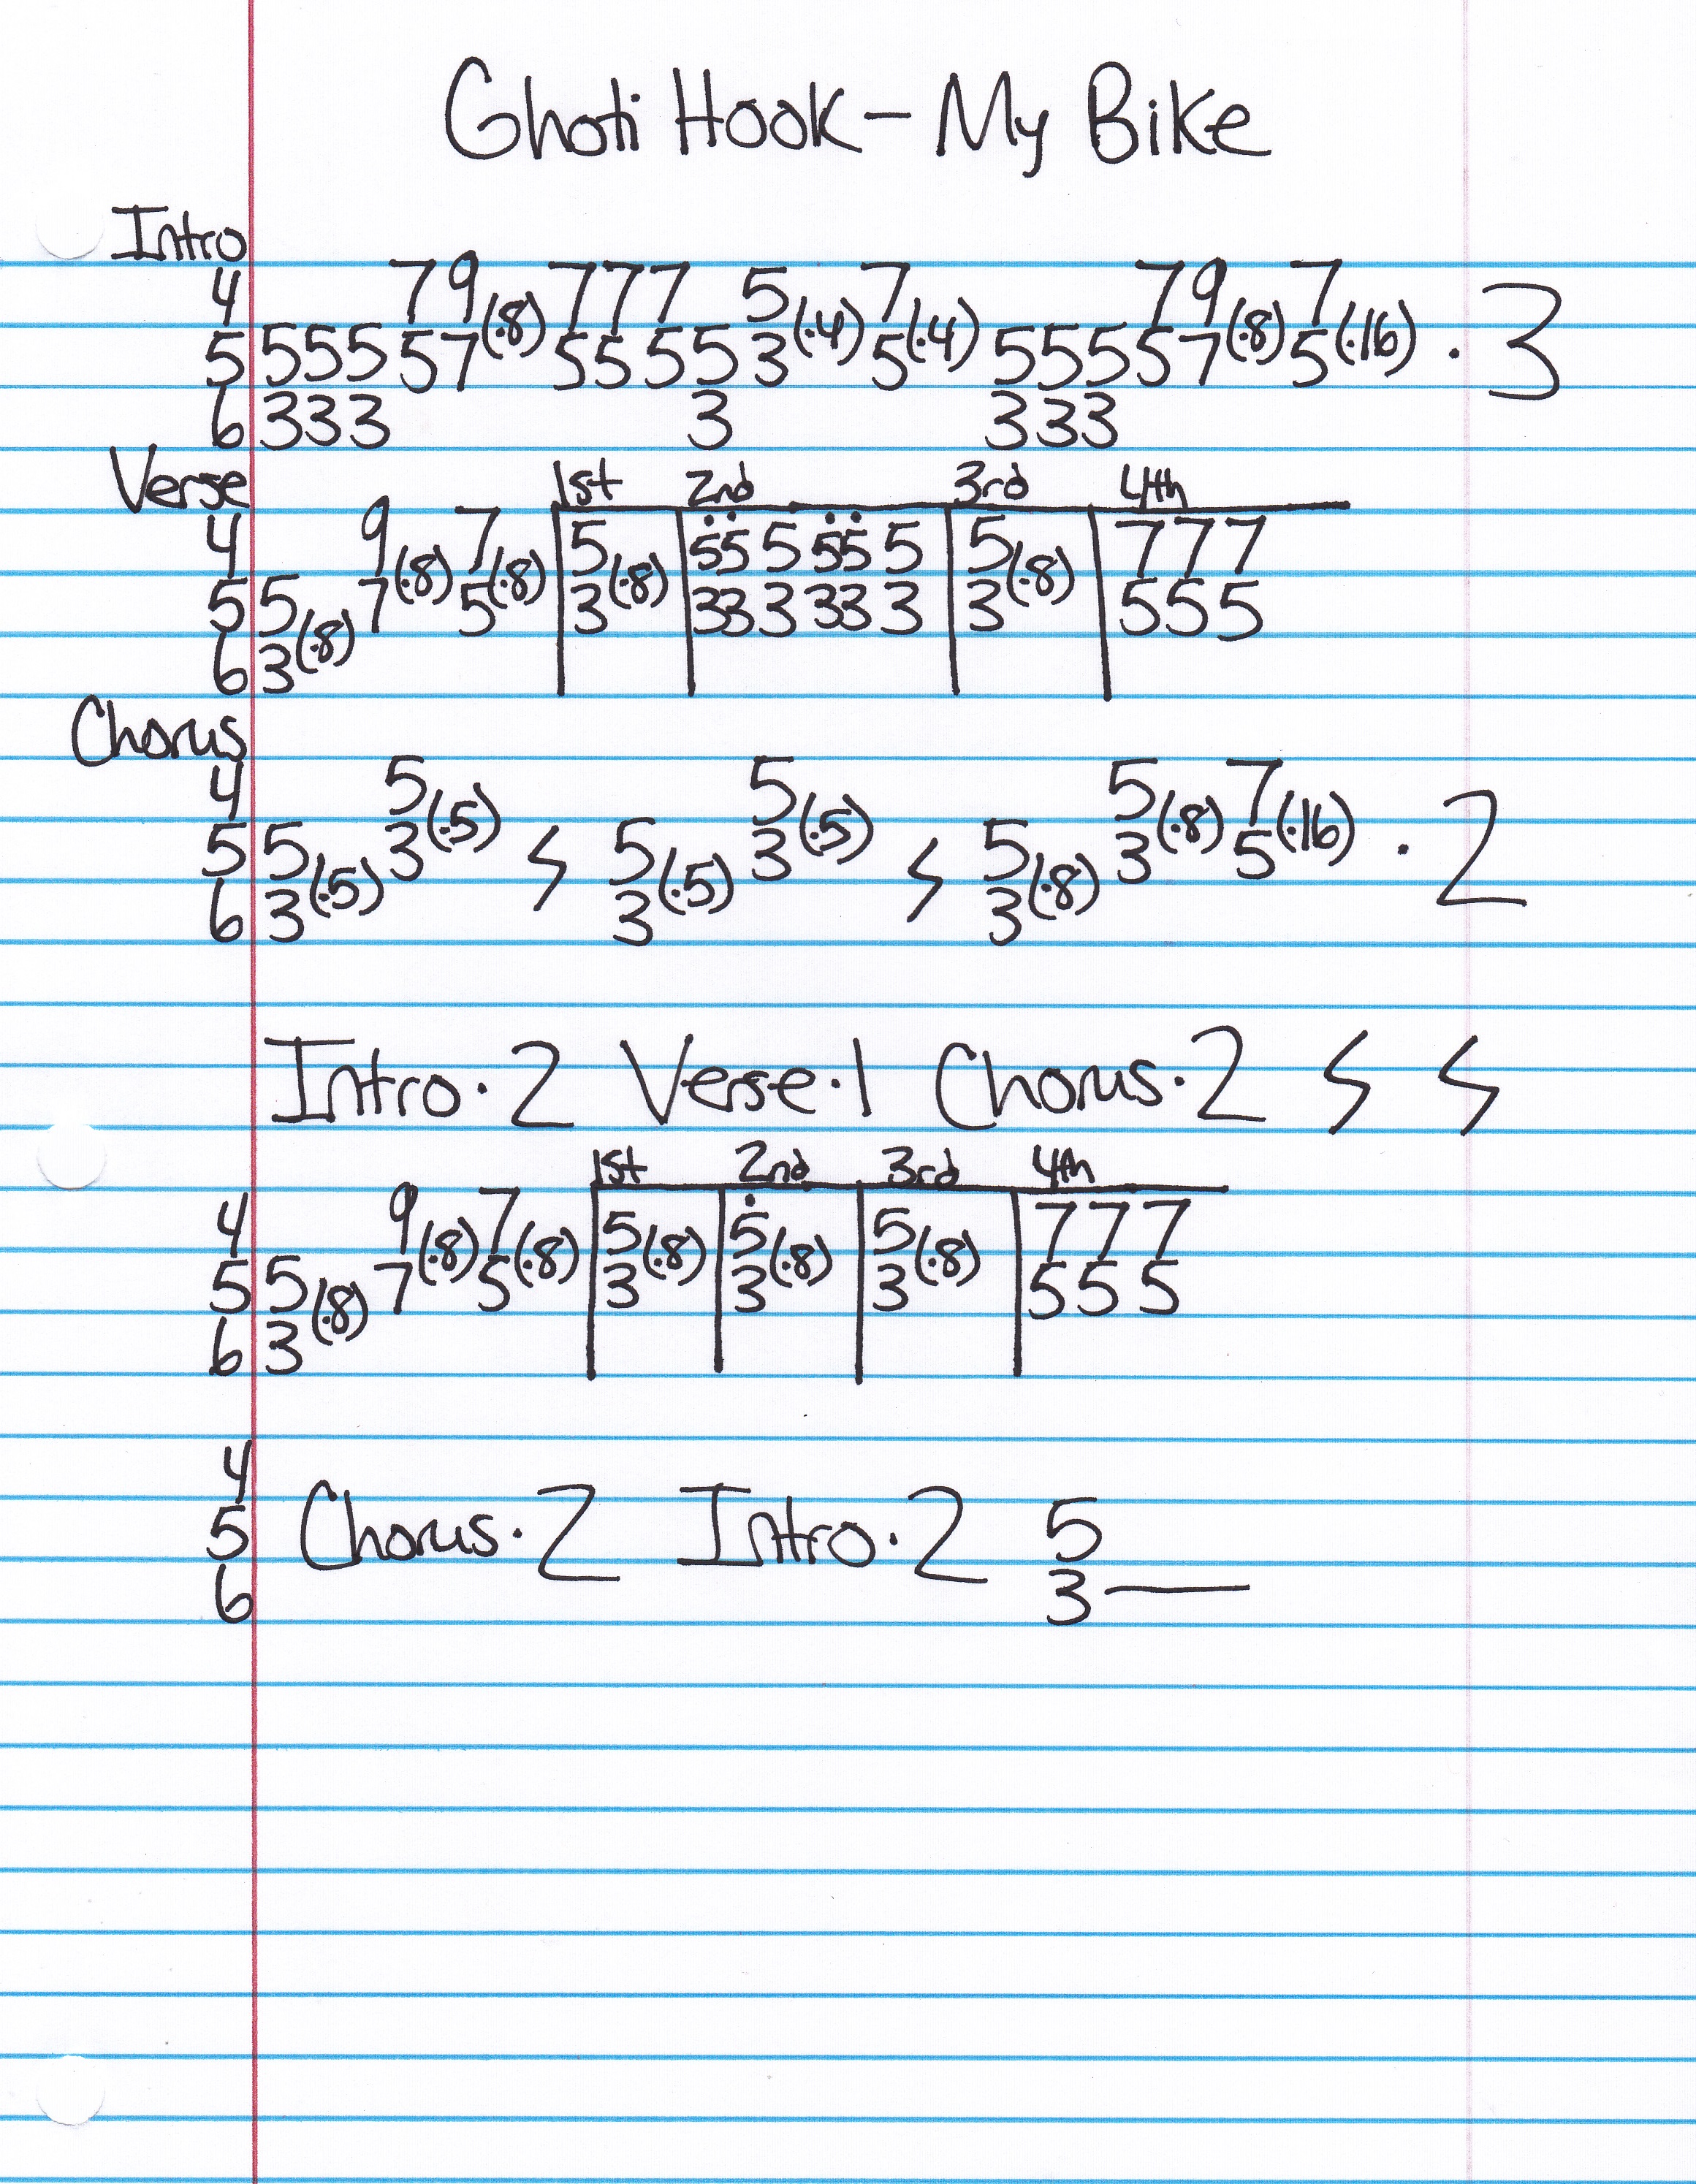 Ghoti Hook - My Bike
Intro
4 7 9 (·8) 7 7 7 5 (·4) 7 (·4) 7 9 (·8) 7 (·16) · 3
5 5 5 5 5 7 5 5 5 5 3 5 5 5 5 5 7 5
6 3 3 3 3 3 3 3
Verse 1st 2nd 3rd 4th
4 9 (·8) 7 (·8) 5 (·8) 5 5 5 5 5 5 5 (·8) 7 7 7
5 5 (·8) 7 5 3 3 3 3 3 3 3 3 5 5 5
6 3
Chorus
4 5 (·5) 5 (·5) 5 (·8) 7 (·16) · 2
5 5 (·5) 3 5 (·5) 3 5 (·8) 3 5
6 3 3 3
Intro · 2 Verse · 1 Chorus · 2
1st 2nd 3rd 4th
4 9 (·8) 7 (·8) 5 (·8) 5 (·8) 5 (·8) 7 7 7
5 5 (·8) 7 5 3 3 3 5 5 5
6 3
4
5 Chorus · 2 Intro · 2 5
6 3 —